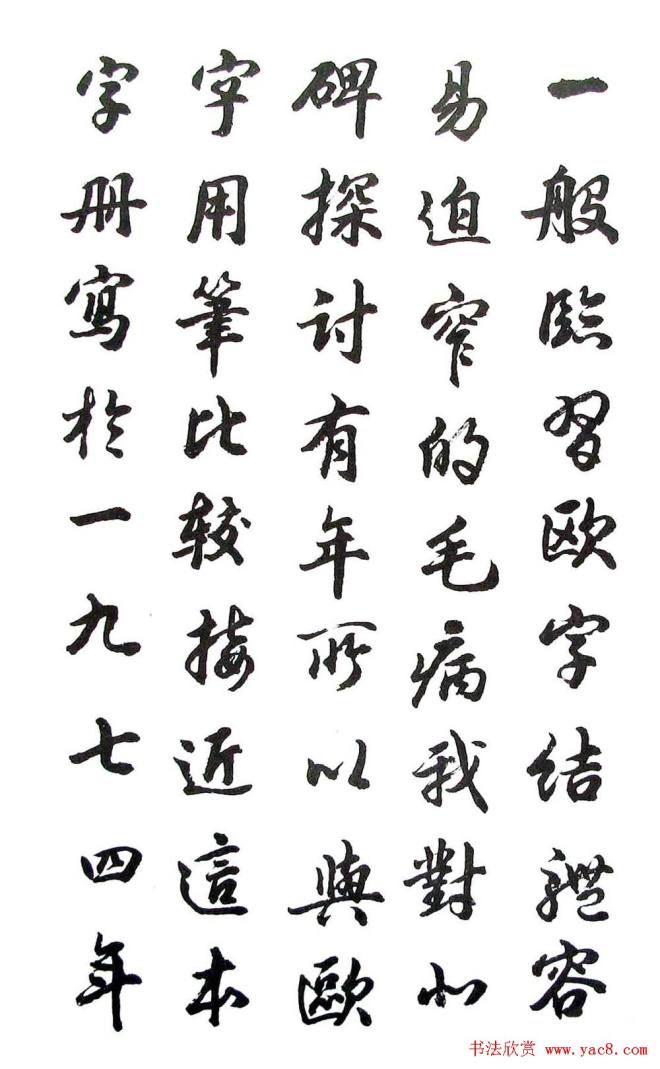 一般臨習欧字結軆容
易迫窄的毛病我對北
碑探討有年所以與歐
字用筆比較接近這本
字册寫於一九七四年
书法欣赏 www.yac8.com